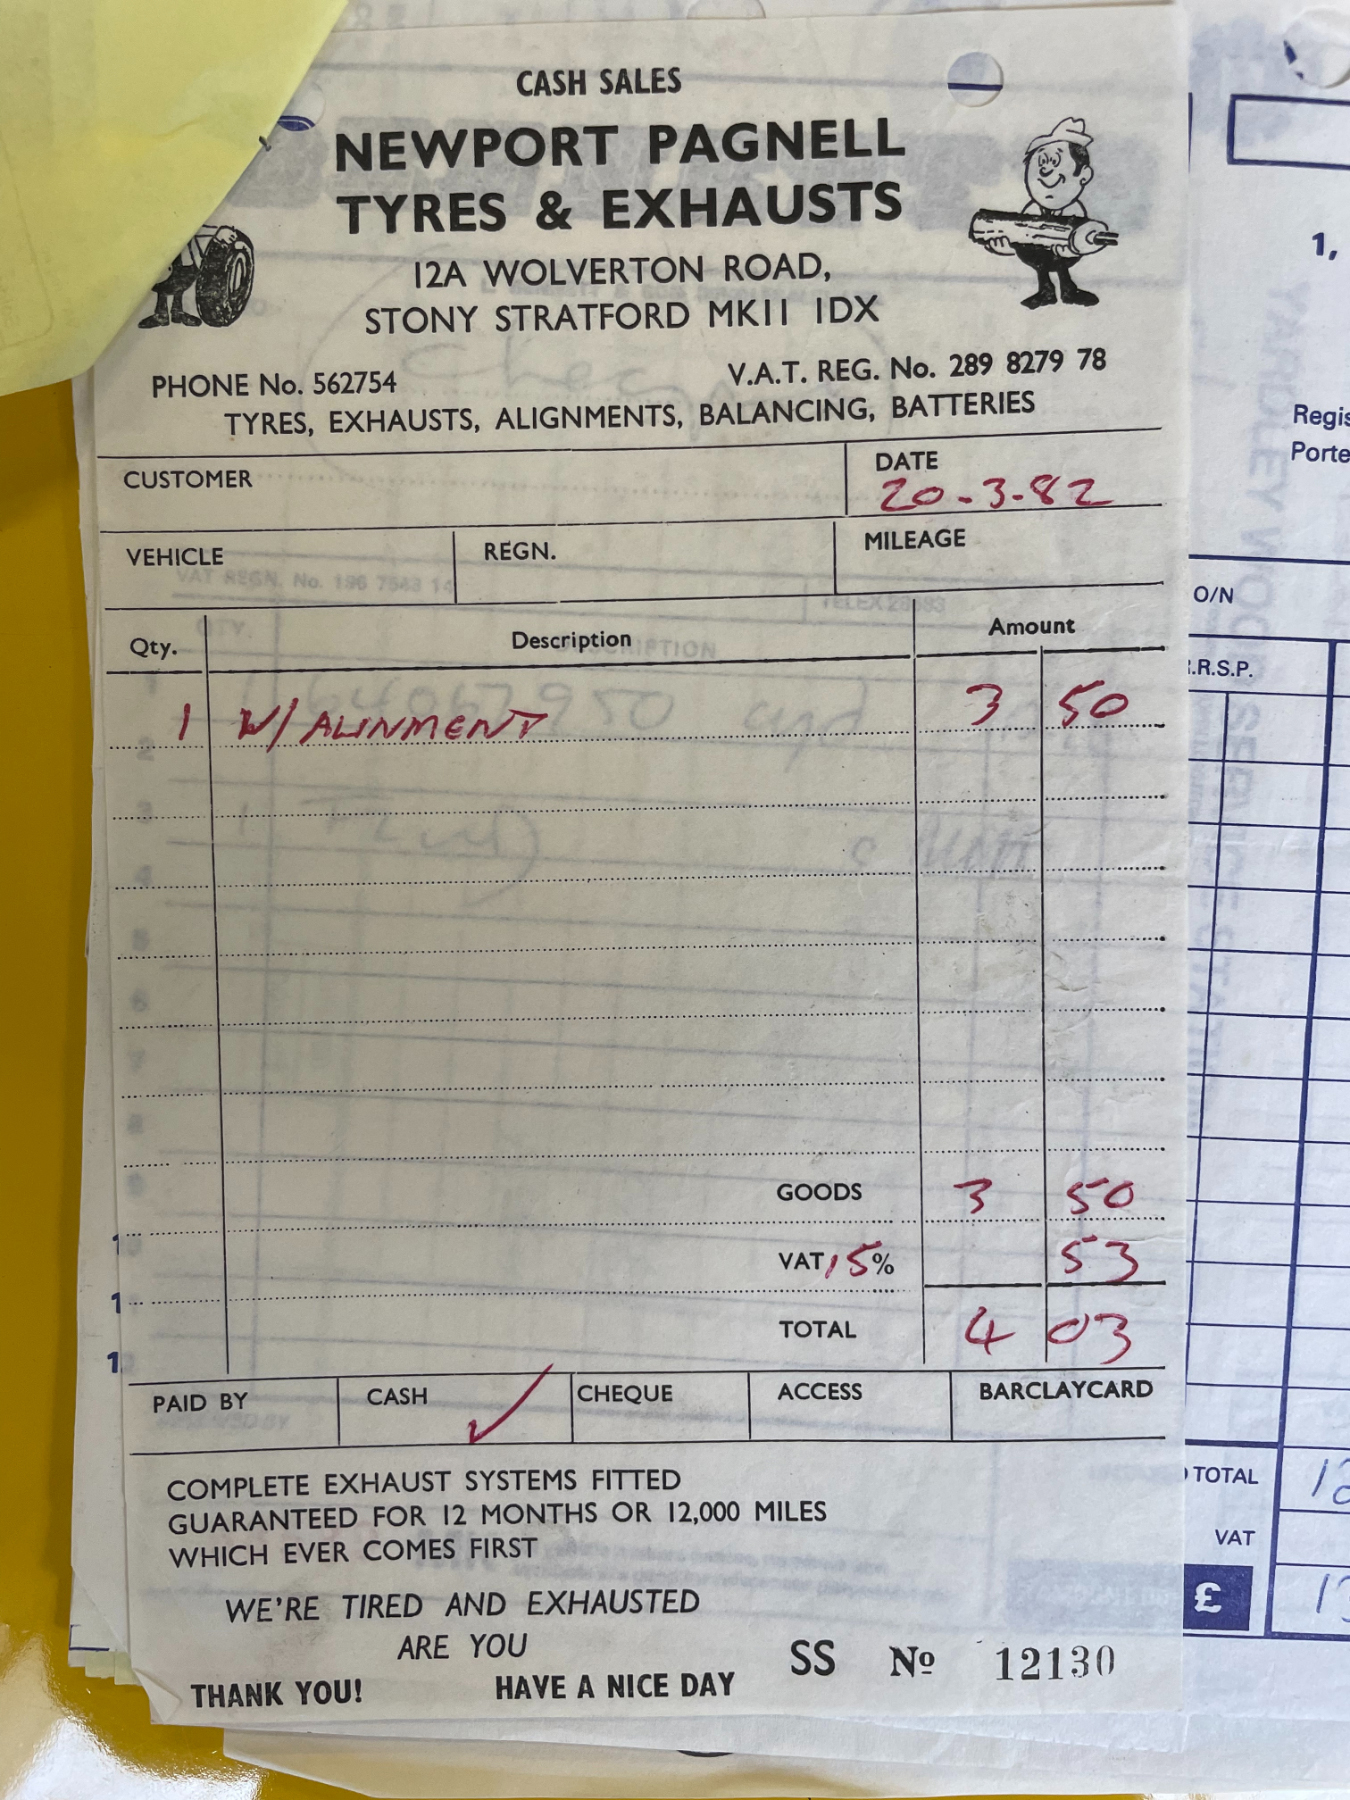 CASH SALES
NEWPORT PAGNELL
TYRES & EXHAUSTS
12A WOLVERTON ROAD,
STONY STRATFORD MK11 1DX
PHONE No. 562754
V.A.T. REG. No. 289 8279 78
TYRES, EXHAUSTS, ALIGNMENTS, BALANCING, BATTERIES
CUSTOMER
DATE
20-3-82
VEHICLE
REGN.
MILEAGE
Qty. Description Amount
1 W/ ALINMENT 3 50
GOODS 3 50
VAT 15% 53
TOTAL 4 03
PAID BY CASH ✓ CHEQUE ACCESS BARCLAYCARD
COMPLETE EXHAUST SYSTEMS FITTED
GUARANTEED FOR 12 MONTHS OR 12,000 MILES
WHICH EVER COMES FIRST
WE'RE TIRED AND EXHAUSTED
ARE YOU
THANK YOU! HAVE A NICE DAY
SS No 12130
1,
Regis
Porte
O/N
.R.S.P.
TOTAL
VAT
£